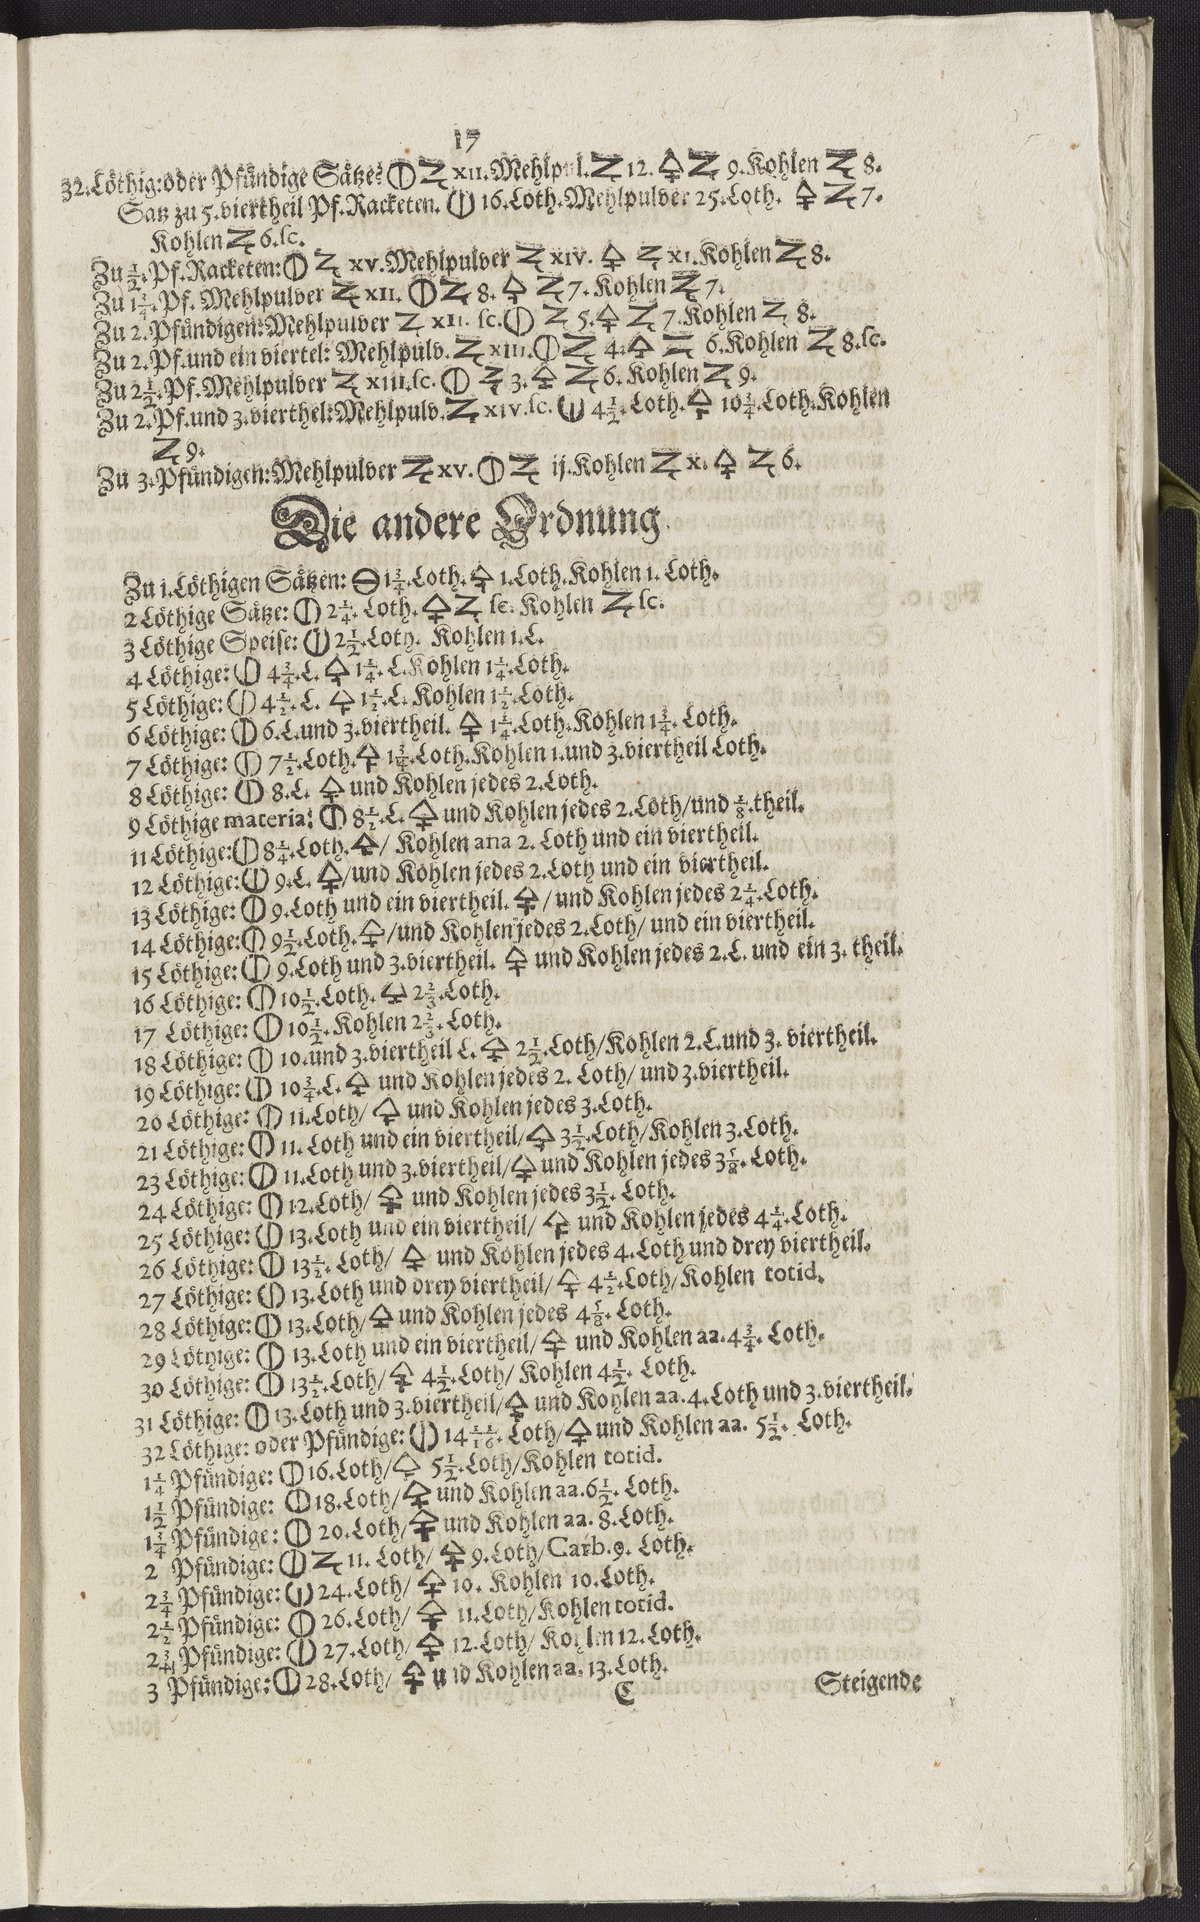 17
32.Löthig:oder Pfündige Sätze: 🜕 Z XII.Mehlpul.Z 12. 🜍 Z 9.Kohlen Z 8.
Satz zu 5.viertheil Pf.Racketen. 🜕 16.Loth.Mehlpulver 25.Loth. 🜍 Z 7.
Kohlen Z 6.ſc.
Zu ½.Pf.Racketen: 🜕 Z XV.Mehlpulver Z XIV. 🜍 Z XI.Kohlen Z 8.
Zu 1¾.Pf. Mehlpulver Z XII. 🜕 Z 8. 🜍 Z 7. Kohlen Z 7.
Zu 2.Pfündigen:Mehlpulver Z XII. ſc. 🜕 Z 5. 🜍 Z 7.Kohlen Z 8.
Zu 2.Pf.und ein viertel: Mehlpulv. Z XIII. 🜕 Z 4. 🜍 Z 6.Kohlen Z 8.ſc.
Zu 2½.Pf.Mehlpulver Z XIII.ſc. 🜕 Z 3. 🜍 Z 6. Kohlen Z 9.
Zu 2.Pf.und 3.vierthel:Mehlpulv. Z XIV.ſc. 🜕 4½.Loth. 🜍 10¾.Loth.Kohlen
Z 9.
Zu 3.Pfündigen:Mehlpulver Z XV. 🜕 Z ij.Kohlen Z X. 🜍 Z 6.
Die andere Ordnung
Zu 1.Löthigen Sätzen: 🜔 1¾.Loth. 🜍 1.Loth.Kohlen 1. Loth.
2 Löthige Sätze: 🜕 2¼. Loth. 🜍 Z ſc. Kohlen Z ſc.
3 Löthige Speiſe: 🜕 2½.Loth. Kohlen 1.L.
4 Löthige: 🜕 4¾.L. 🜍 1¼. L.Kohlen 1¼.Loth.
5 Löthige: 🜕 4½.L. 🜍 1½.L. Kohlen 1½.Loth.
6 Löthige: 🜕 6.L.und 3.viertheil. 🜍 1¼.Loth.Kohlen 1¾. Loth.
7 Löthige: 🜕 7½.Loth. 🜍 1¾.Loth.Kohlen 1.und 3.viertheil Loth.
8 Löthige: 🜕 8.L. 🜍 und Kohlen jedes 2.Loth.
9 Löthige materia: 🜕 8½.L. 🜍 und Kohlen jedes 2.Loth/und ⅛.theil.
11 Löthige: 🜕 8¼.Loth. 🜍/ Kohlen ana 2. Loth und ein viertheil.
12 Löthige: 🜕 9.L. 🜍/und Kohlen jedes 2.Loth und ein viertheil.
13 Löthige: 🜕 9.Loth und ein viertheil. 🜍/ und Kohlen jedes 2¼.Loth.
14 Löthige: 🜕 9½.Loth. 🜍/und Kohlen jedes 2.Loth/ und ein viertheil.
15 Löthige: 🜕 9.Loth und 3.viertheil. 🜍 und Kohlen jedes 2.L. und ein 3. theil.
16 Löthige: 🜕 10½.Loth. 🜍 2⅔.Loth.
17 Löthige: 🜕 10½. Kohlen 2⅔. Loth.
18 Löthige: 🜕 10.und 3.viertheil L. 🜍 2½.Loth/Kohlen 2.L.und 3. viertheil.
19 Löthige: 🜕 10¾.L. 🜍 und Kohlen jedes 2. Loth/ und 3.viertheil.
20 Löthige: 🜕 11.Loth/ 🜍 und Kohlen jedes 3.Loth.
21 Löthige: 🜕 11. Loth und ein viertheil/ 🜍 3½.Loth/Kohlen 3.Loth.
23 Löthige: 🜕 11.Loth und 3.viertheil/ 🜍 und Kohlen jedes 3⅛. Loth.
24 Löthige: 🜕 12.Loth/ 🜍 und Kohlen jedes 3½. Loth.
25 Löthige: 🜕 13.Loth und ein viertheil/ 🜍 und Kohlen jedes 4¼.Loth.
26 Löthige: 🜕 13½. Loth/ 🜍 und Kohlen jedes 4.Loth und drey viertheil.
27 Löthige: 🜕 13.Loth und drey viertheil/ 🜍 4½.Loth/Kohlen totid.
28 Löthige: 🜕 13.Loth/ 🜍 und Kohlen jedes 4⅝. Loth.
29 Löthige: 🜕 13.Loth und ein viertheil/ 🜍 und Kohlen aa.4¾. Loth.
30 Löthige: 🜕 13½.Loth/ 🜍 4½.Loth/ Kohlen 4½. Loth.
31 Löthige: 🜕 13.Loth und 3.viertheil/ 🜍 und Kohlen aa.4.Loth und 3.viertheil.
32 Löthige: oder Pfündige: 🜕 14 Loth/ 🜍 und Kohlen aa. 5½. Loth.
1¼ Pfündige: 🜕 16.Loth/ 🜍 5½.Loth/Kohlen totid.
1½ Pfündige: 🜕 18.Loth/ 🜍 und Kohlen aa.6½. Loth.
1¾ Pfündige: 🜕 20.Loth/ 🜍 und Kohlen aa. 8.Loth.
2 Pfündige: 🜕 Z 11. Loth/ 🜍 9.Loth/Carb.9. Loth.
2¾ Pfündige: 🜕 24.Loth/ 🜍 10. Kohlen 10.Loth.
2½ Pfündige: 🜕 26.Loth/ 🜍 11.Loth/Kohlen totid.
2¾ Pfündige: 🜕 27.Loth/ 🜍 12.Loth/ Kohlen 12.Loth.
3 Pfündige: 🜕 28.Loth/ 🜍 und Kohlen aa. 13.Loth.
C Steigende